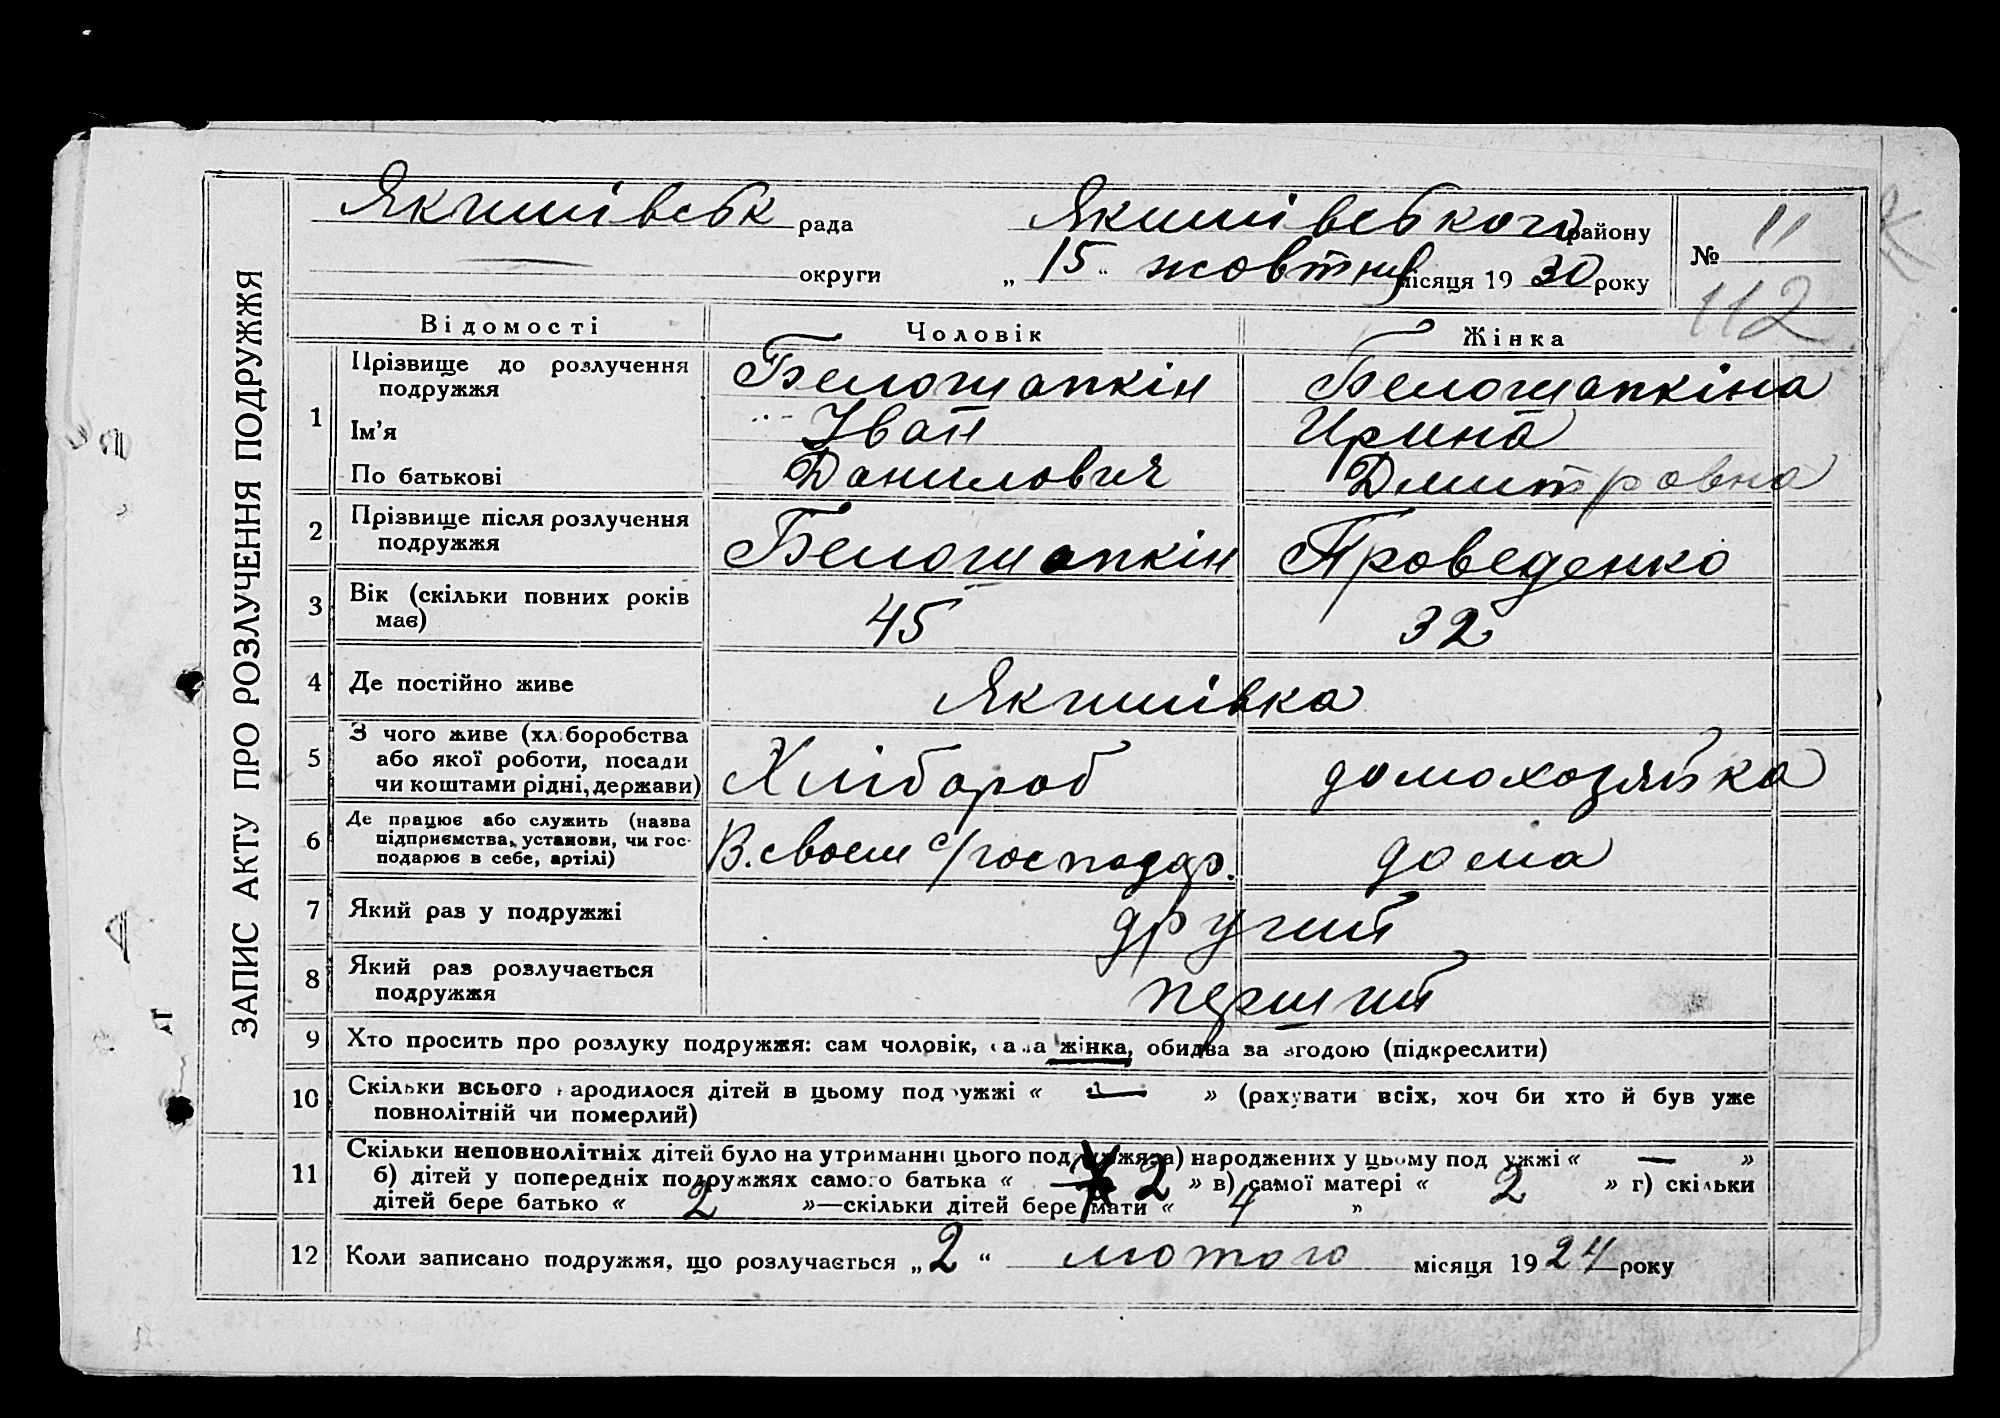 ЗАПИС АКТУ ПРО РОЗЛУЧЕННЯ ПОДРУЖЖЯ
Якимівськ рада Якимівського району № 11
округи „ 15 “ жовтня місяця 1930 року
112
Відомості Чоловік Жінка
1 Прізвище до розлучення подружжя Белошапкін Белошапкіна
Ім'я Іван Ирина
По батькові Данилович Дмитровна
2 Прізвище після розлучення подружжя Белошапкін Проведенко
3 Вік (скільки повних років має) 45 32
4 Де постійно живе Якимівка
5 З чого живе (хліборобства
або якої роботи, посади
чи коштами рідні, держави) Хлібороб домохозяйка
6 Де працює або служить (назва
підприємства, установи, чи гос-
подарює в себе, артілі) В. своем с/господар. дома
7 Який раз у подружжі другий
8 Який раз розлучається
подружжя перший
9 Хто просить про розлуку подружжя: сам чоловік, сама жінка, обидва за згодою (підкреслити)
10 Скільки всього народилося дітей в цьому подружжі « — » (рахувати всіх, хоч би хто й був уже
повнолітній чи померлий)
11 Скільки неповнолітніх дітей було на утриманні цього подружжя: а) народжених у цьому подружжі « — »
б) дітей у попередніх подружжях самого батька « 2 » в) самої матері « 2 » г) скільки
дітей бере батько « 2 »—скільки дітей бере мати « 4 »
12 Коли записано подружжя, що розлучається „ 2 “ лютого місяця 1924 року